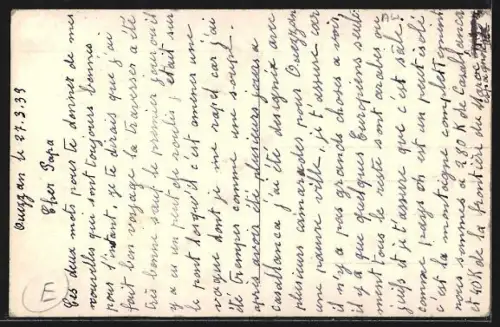 Ouezzan le 27.3.39
Cher Papa
Ces deux mots pour te donner de mes
nouvelles qui sont toujours bonnes
pour l'instant, je te dirais que j'ai
fait bon voyage la traversée a été
très bonne sauf le premier jour ou il
y a eu un peut de roulis, j'étais sur
le pont lorsqu'il c'est amener une
vague dont je me rapel car j'ai
été tremper comme une soupe.
après avoir été plusieurs jours a
Casablanca j'ai été designer avec
plusieurs camarades pour Ouezzan
une pauvre ville, je t'assure car
il n'y a pas grands choses a voir
il y a que quelques Européens seule-
ment tous le reste sont arabes ou
juifs et je t'assure que c'est sâle
comme pays on est un peut isolé
c'est la montagne complettement
nous sommes a 240 K de Casablanca
et 40 K de la frontière du Maroc
espagnole
E